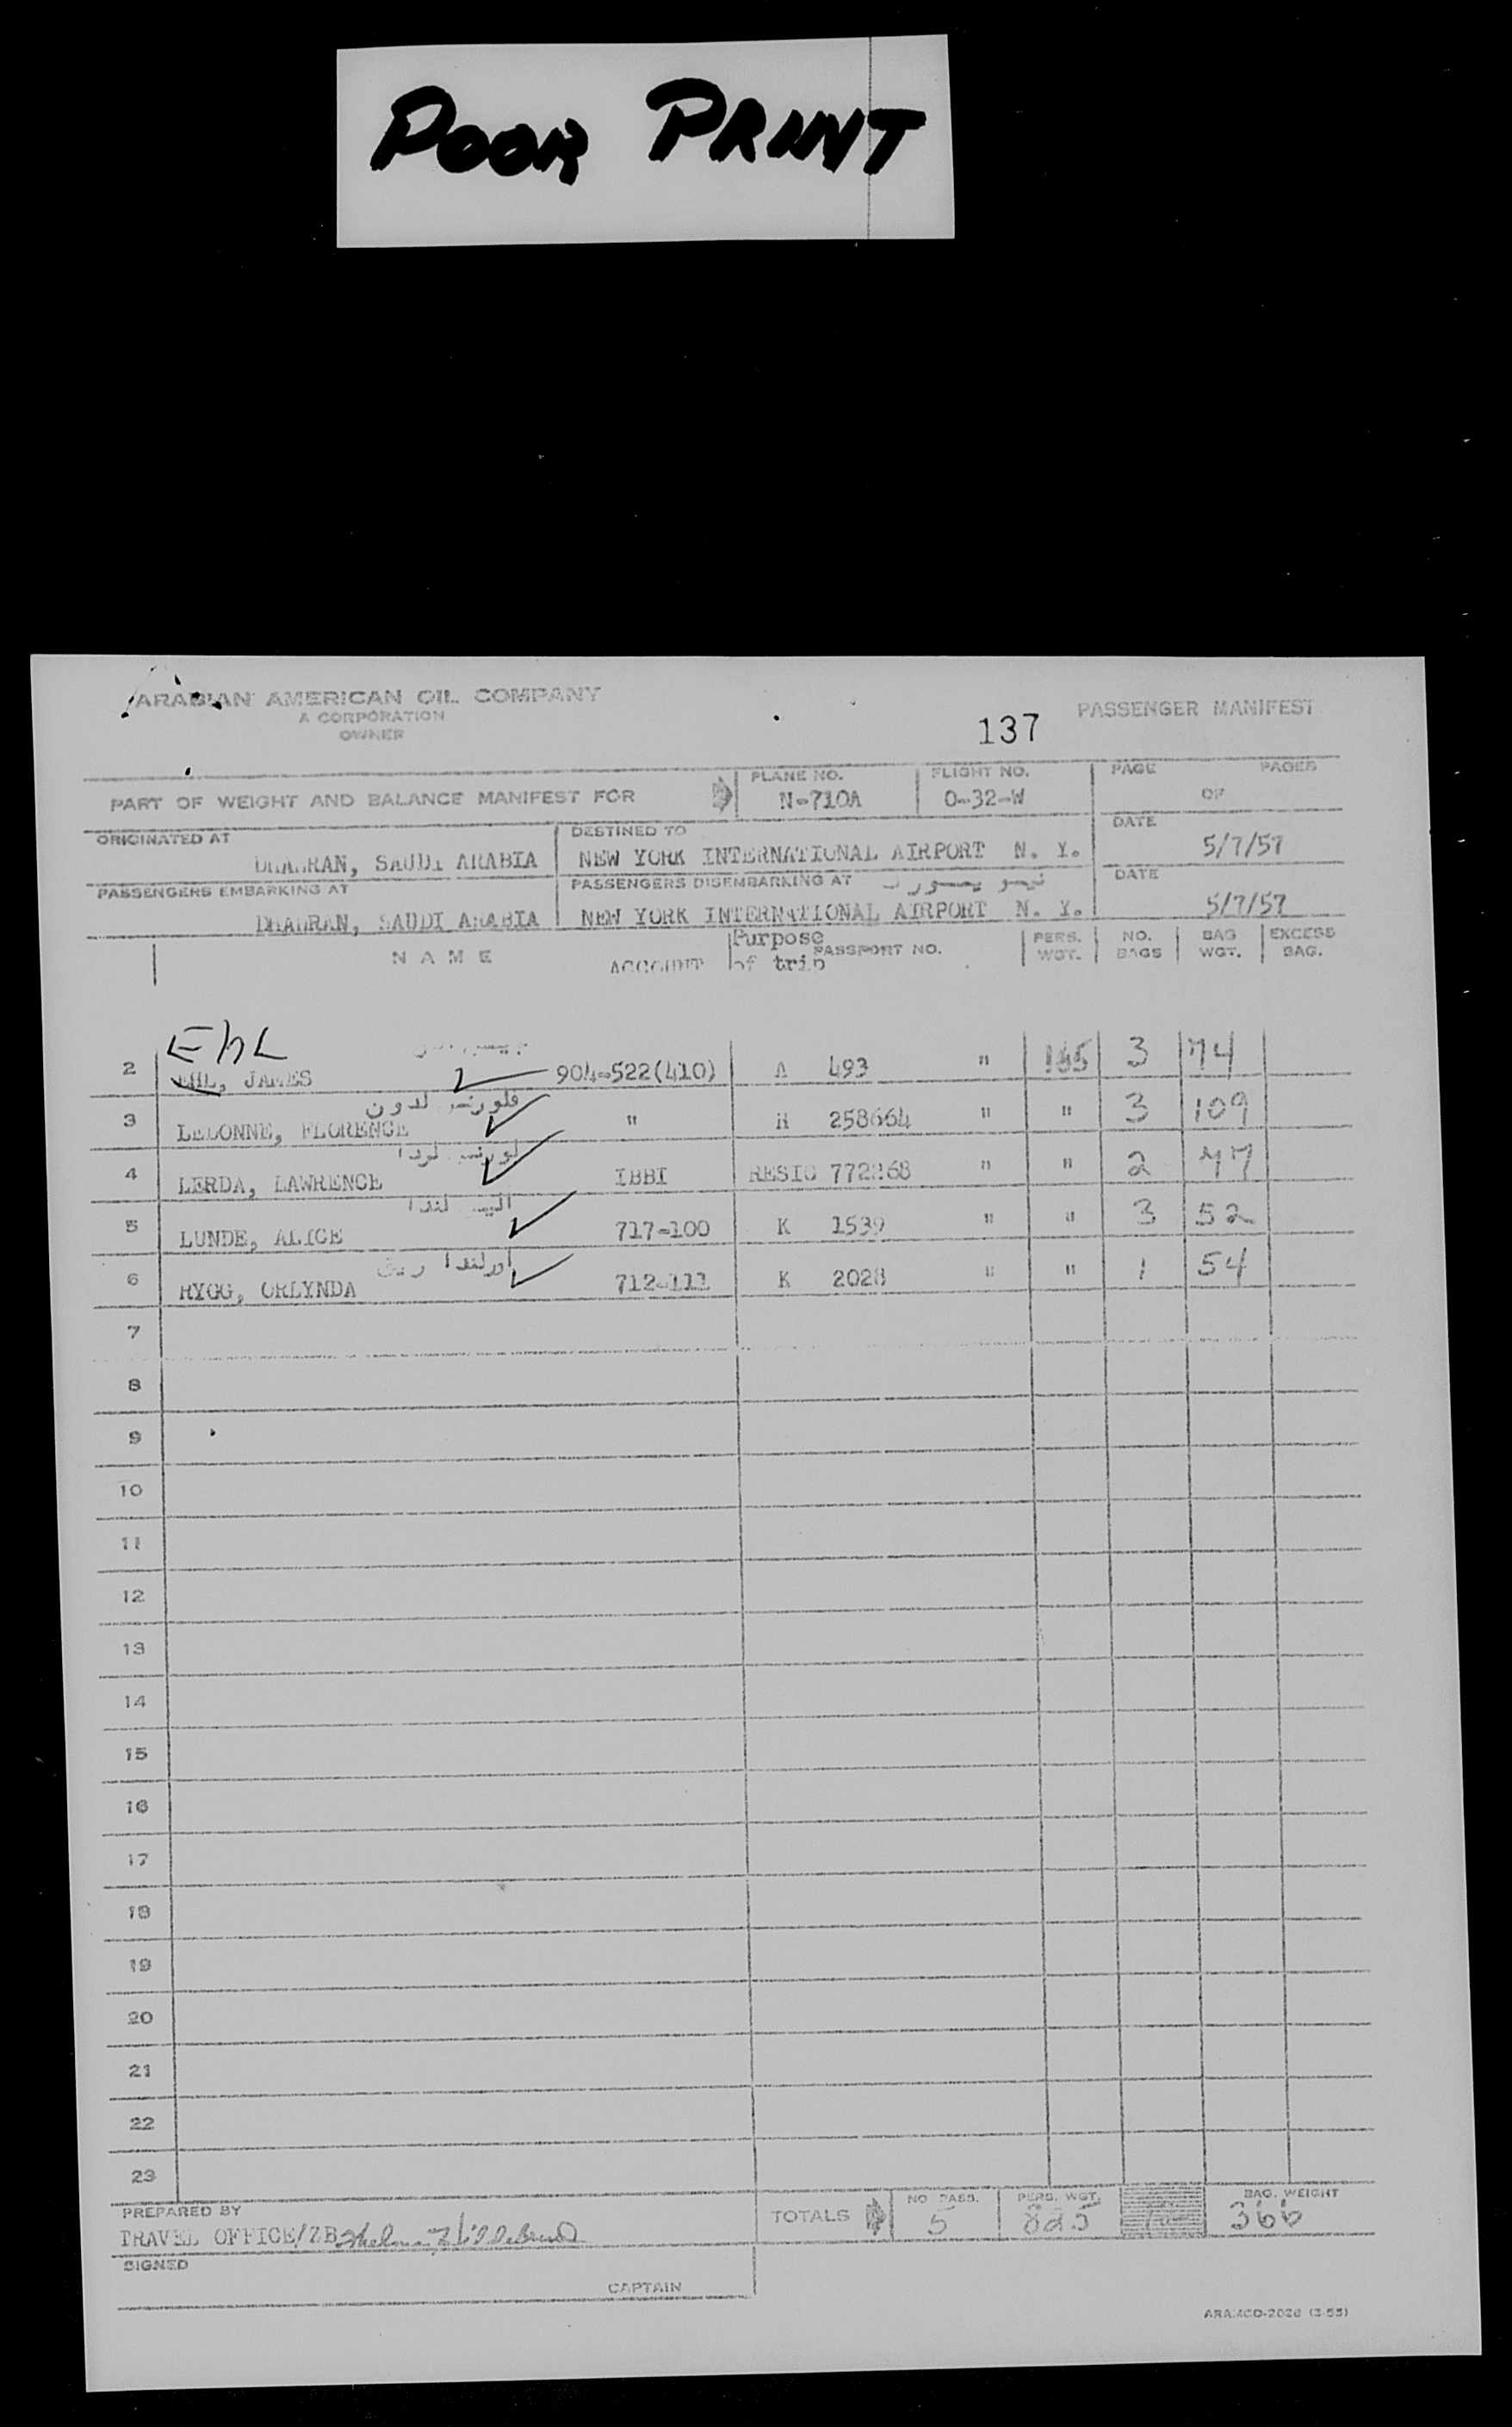 POOR PRINT
ARABIAN AMERICAN OIL COMPANY
A CORPORATION
OWNER
137
PASSENGER MANIFEST
PART OF WEIGHT AND BALANCE MANIFEST FOR
PLANE NO.
N-710A
FLIGHT NO.
O-32-W
PAGE OF PAGES
ORIGINATED AT
DHAHRAN, SAUDI ARABIA
DESTINED TO
NEW YORK INTERNATIONAL AIRPORT N. Y.
DATE
5/7/57
PASSENGERS EMBARKING AT
DHAHRAN, SAUDI ARABIA
PASSENGERS DISEMBARKING AT
NEW YORK INTERNATIONAL AIRPORT N. Y.
DATE
5/7/57
NAME ACCOUNT Purpose of trip PASSPORT NO. PERS. WGT. NO. BAGS BAG WGT. EXCESS BAG.
EhL
2 EHL, JAMES 904-522(410) A 493 " 165 3 74
فلورنس لدون
3 LEDONNE, FLORENCE " H 258664 " " 3 109
لورنس لردا
4 LERDA, LAWRENCE IBBI 772268 " " 2 77
اليس لندا
5 LUNDE, ALICE 717-100 K 1539 " " 3 52
اورلندا
6 RYGG, ORLYNDA 712-111 K 2028 " " 1 54
7
8
9
10
11
12
13
14
15
16
17
18
19
20
21
22
23
PREPARED BY
TRAVEL OFFICE/ZB
TOTALS
NO. PASS.
5
PERS. WGT.
825
BAG. WEIGHT
366
SIGNED
CAPTAIN
ARAMCO-2026 (3-55)